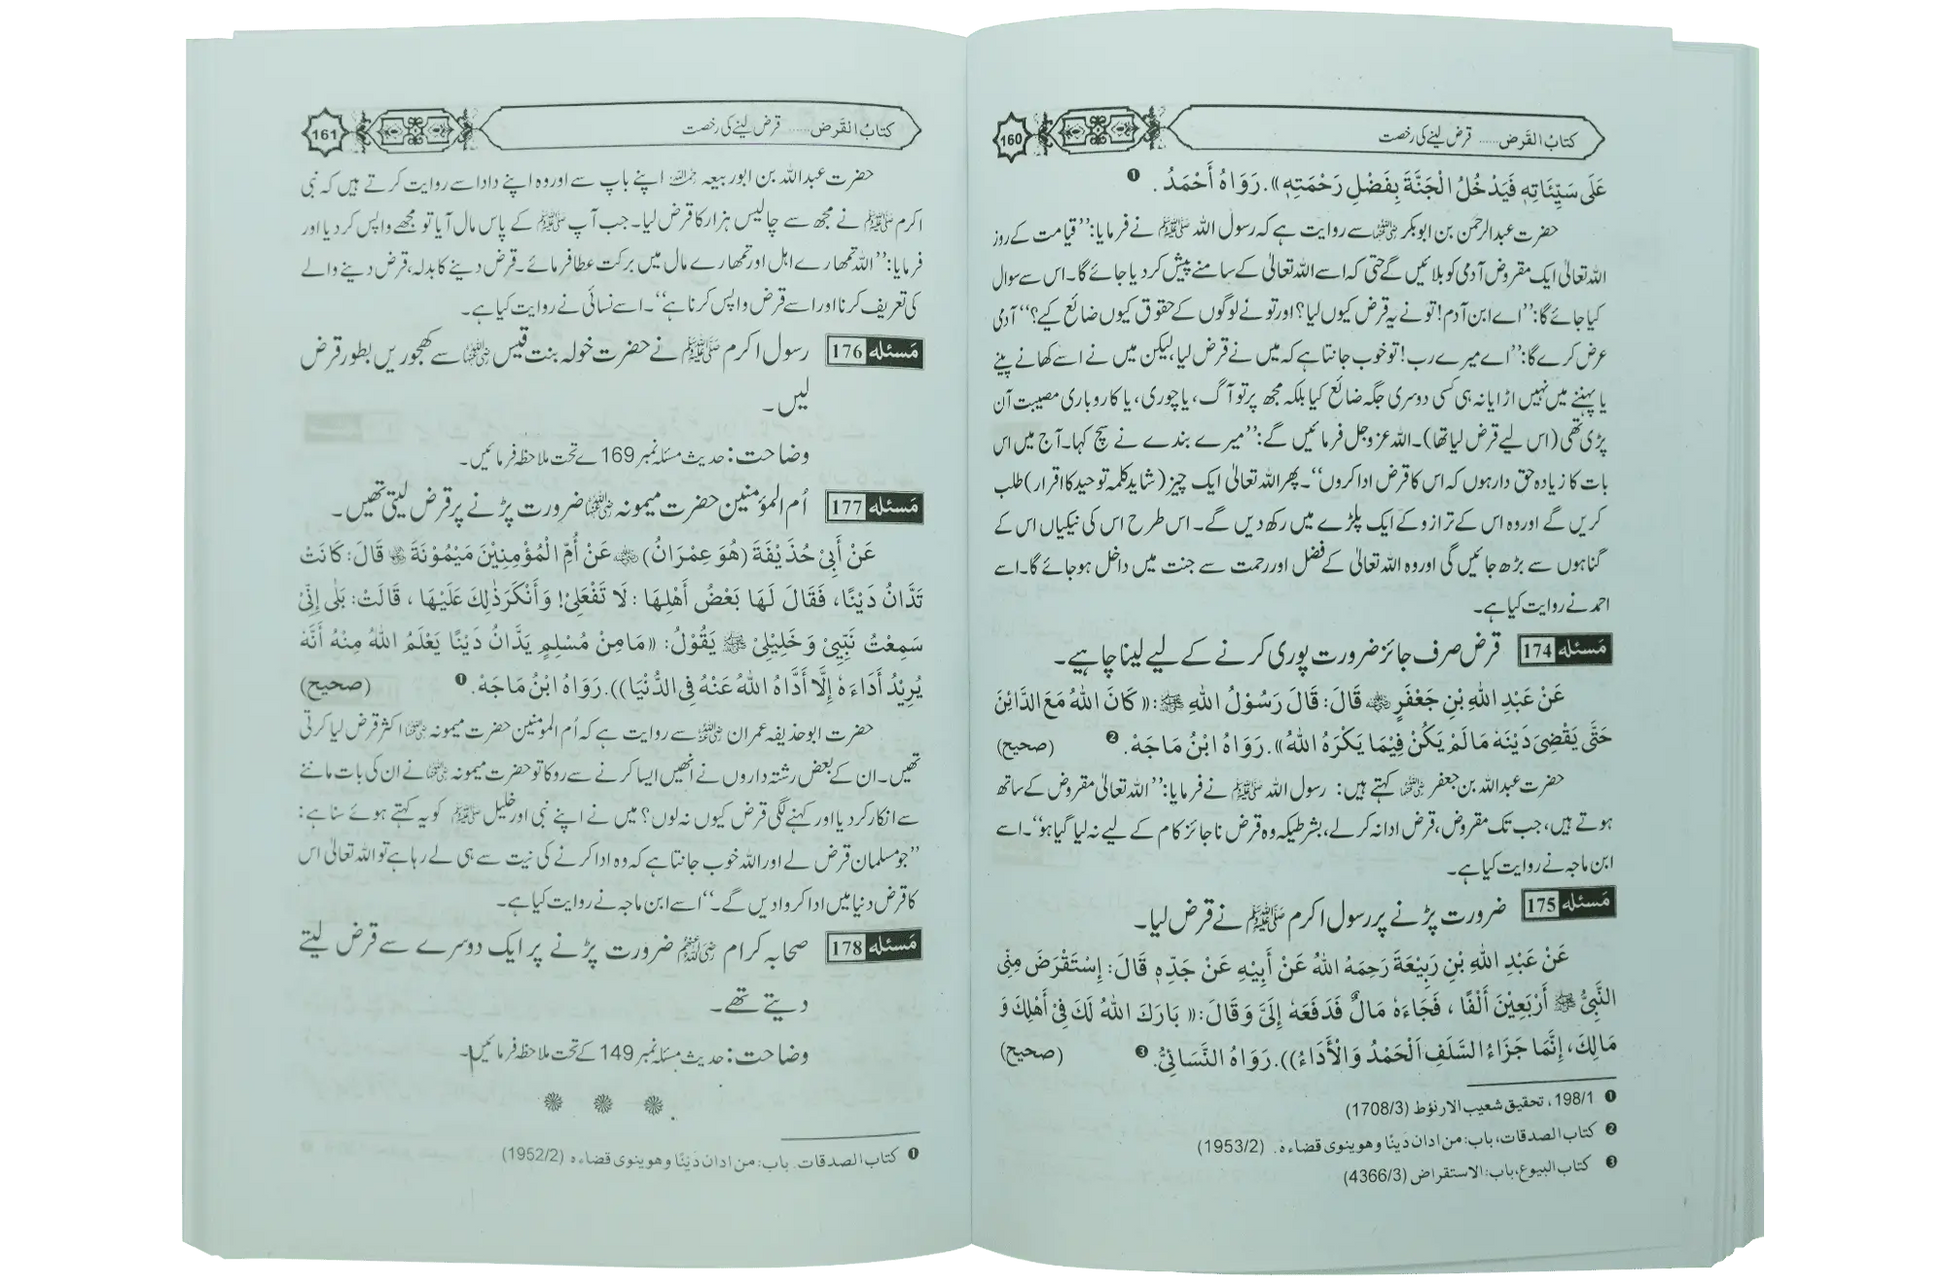 160 کتابُ القَرض ...... قرض لینے کی رخصت
عَلَی سَیِّئَاتِهٖ فَیَدْخُلُ الْجَنَّةَ بِفَضْلِ رَحْمَتِهٖ)). رَوَاهُ أَحْمَدُ . ❶
حضرت عبدالرحمٰن بن ابوبکر رضی اللہ عنہما سے روایت ہے کہ رسول اللہ ﷺ نے فرمایا: ’’قیامت کے روز
اللہ تعالیٰ ایک مقروض آدمی کو بلائیں گے حتی کہ اسے اللہ تعالیٰ کے سامنے پیش کر دیا جائے گا۔ اس سے سوال
کیا جائے گا: ’’اے ابن آدم! تو نے یہ قرض کیوں لیا؟ اور تو نے لوگوں کے حقوق کیوں ضائع کیے؟‘‘ آدمی
عرض کرے گا: ’’اے میرے رب! تو خوب جانتا ہے کہ میں نے قرض لیا، لیکن میں نے اسے کھانے پینے
یا پہننے میں نہیں اڑایا نہ ہی کسی دوسری جگہ ضائع کیا بلکہ مجھ پر تو آگ، یا چوری، یا کاروباری مصیبت آن
پڑی تھی (اس لیے قرض لیا تھا)۔ اللہ عزوجل فرمائیں گے: ’’میرے بندے نے سچ کہا۔ آج میں اس
بات کا زیادہ حق دار ہوں کہ اس کا قرض ادا کروں‘‘۔ پھر اللہ تعالیٰ ایک چیز (شاید کلمہ توحید کا اقرار) طلب
کریں گے اور وہ اس کے ترازو کے ایک پلڑے میں رکھ دیں گے۔ اس طرح اس کی نیکیاں اس کے
گناہوں سے بڑھ جائیں گی اور وہ اللہ تعالیٰ کے فضل اور رحمت سے جنت میں داخل ہو جائے گا۔ اسے
احمد نے روایت کیا ہے۔
مَسئله 174 قرض صرف جائز ضرورت پوری کرنے کے لیے لینا چاہیے۔
عَنْ عَبْدِ اللهِ بْنِ جَعْفَرٍ رضی اللہ عنہ قَالَ: قَالَ رَسُوْلُ اللهِ ﷺ: (( كَانَ اللهُ مَعَ الدَّائِنَ
حَتَّى يَقْضِيَ دَيْنَهٗ مَا لَمْ يَكُنْ فِيْمَا يَكْرَهُ اللهُ)). رَوَاهُ ابْنُ مَاجَهْ. ❷ (صحيح)
حضرت عبداللہ بن جعفر رضی اللہ عنہما کہتے ہیں: رسول اللہ ﷺ نے فرمایا: ’’اللہ تعالیٰ مقروض کے ساتھ
ہوتے ہیں، جب تک مقروض، قرض ادا نہ کر لے، بشرطیکہ وہ قرض ناجائز کام کے لیے نہ لیا گیا ہو‘‘۔ اسے
ابن ماجہ نے روایت کیا ہے۔
مَسئله 175 ضرورت پڑنے پر رسول اکرم ﷺ نے قرض لیا۔
عَنْ عَبْدِ اللهِ بْنِ رَبِيْعَةَ رَحِمَهُ اللهُ عَنْ أَبِيْهِ عَنْ جَدِّهٖ قَالَ: إِسْتَقْرَضَ مِنِّى
النَّبِيُّ ﷺ أَرْبَعِيْنَ أَلْفًا ، فَجَاءَهٗ مَالٌ فَدَفَعَهٗ إِلَيَّ وَ قَالَ: (( بَارَكَ اللهُ لَكَ فِيْ أَهْلِكَ وَ
مَالِكَ، إِنَّمَا جَزَاءُ السَّلَفِ اَلْحَمْدُ وَ الْأَدَاءُ)). رَوَاهُ النَّسَائِيُّ. ❸ (صحيح)
❶ 198/1، تحقیق شعیب الارنؤط (1708/3)
❷ کتاب الصدقات، باب: من ادان دَیْنًا وهو ینوی قضاءه. (1953/2)
❸ کتاب البیوع، باب: الاستقراض (4366/3)
161 کتابُ القَرض ...... قرض لینے کی رخصت
حضرت عبداللہ بن ابو ربیعہ رحمہ اللہ اپنے باپ سے اور وہ اپنے دادا سے روایت کرتے ہیں کہ نبی
اکرم ﷺ نے مجھ سے چالیس ہزار کا قرض لیا۔ جب آپ ﷺ کے پاس مال آیا تو مجھے واپس کر دیا اور
فرمایا: ’’اللہ تمھارے اہل اور تمھارے مال میں برکت عطا فرمائے۔ قرض دینے کا بدلہ، قرض دینے والے
کی تعریف کرنا اور اسے قرض واپس کرنا ہے‘‘۔ اسے نسائی نے روایت کیا ہے۔
مَسئله 176 رسول اکرم ﷺ نے حضرت خولہ بنت قیس رضی اللہ عنہا سے کھجوریں بطور قرض
لیں۔
وضاحت: حدیث مسئلہ نمبر 169 ے تحت ملاحظہ فرمائیں۔
مَسئله 177 اُم المؤمنین حضرت میمونہ رضی اللہ عنہا ضرورت پڑنے پر قرض لیتی تھیں۔
عَنْ أَبِيْ حُذَيْفَةَ (هُوَ عِمْرَانُ) رضی اللہ عنہ عَنْ أُمِّ الْمُؤْمِنِيْنَ مَيْمُوْنَةَ رضی اللہ عنہا قَالَ: كَانَتْ
تَدَّانُ دَيْنًا، فَقَالَ لَهَا بَعْضُ أَهْلِهَا : لَا تَفْعَلِيْ! وَ أَنْكَرَ ذٰلِكَ عَلَيْهَا ، قَالَتْ: بَلٰى إِنِّيْ
سَمِعْتُ نَبِّيِيْ وَ خَلِيْلِيْ ﷺ يَقُوْلُ: (( مَا مِنْ مُسْلِمٍ يَدَّانُ دَيْنًا يَعْلَمُ اللهُ مِنْهُ أَنَّهٗ
يُرِيْدُ أَدَاءَهٗ إِلَّا أَدَّاهُ اللهُ عَنْهُ فِي الدُّنْيَا)). رَوَاهُ ابْنُ مَاجَهْ. ❶ (صحيح)
حضرت ابو حذیفہ عمران رضی اللہ عنہ سے روایت ہے کہ اُم المومنین حضرت میمونہ رضی اللہ عنہا اکثر قرض لیا کرتی
تھیں۔ ان کے بعض رشتہ داروں نے انھیں ایسا کرنے سے روکا تو حضرت میمونہ رضی اللہ عنہا نے ان کی بات ماننے
سے انکار کر دیا اور کہنے لگی قرض کیوں نہ لوں؟ میں نے اپنے نبی اور خلیل ﷺ کو یہ کہتے ہوئے سنا ہے:
’’جو مسلمان قرض لے اور اللہ خوب جانتا ہے کہ وہ ادا کرنے کی نیت سے ہی لے رہا ہے تو اللہ تعالیٰ اس
کا قرض دنیا میں ادا کروا دیں گے۔‘‘ اسے ابن ماجہ نے روایت کیا ہے۔
مَسئله 178 صحابہ کرام رضی اللہ عنہم ضرورت پڑنے پر ایک دوسرے سے قرض لیتے
دیتے تھے۔
وضاحت: حدیث مسئلہ نمبر 149 کے تحت ملاحظہ فرمائیں۔
❶ کتاب الصدقات. باب: من ادان دَیْنًا وهو ینوی قضاءه (1952/2)